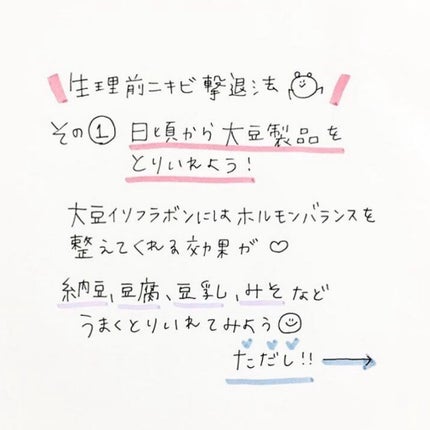 生理前ニキビ撃退法
その① 日頃から大豆製品を
とりいれよう!
大豆イソフラボンにはホルモンバランスを
整えてくれる効果が♡
納豆、豆腐、豆乳、みそなど
うまくとりいれてみよう☺
ただし!! →